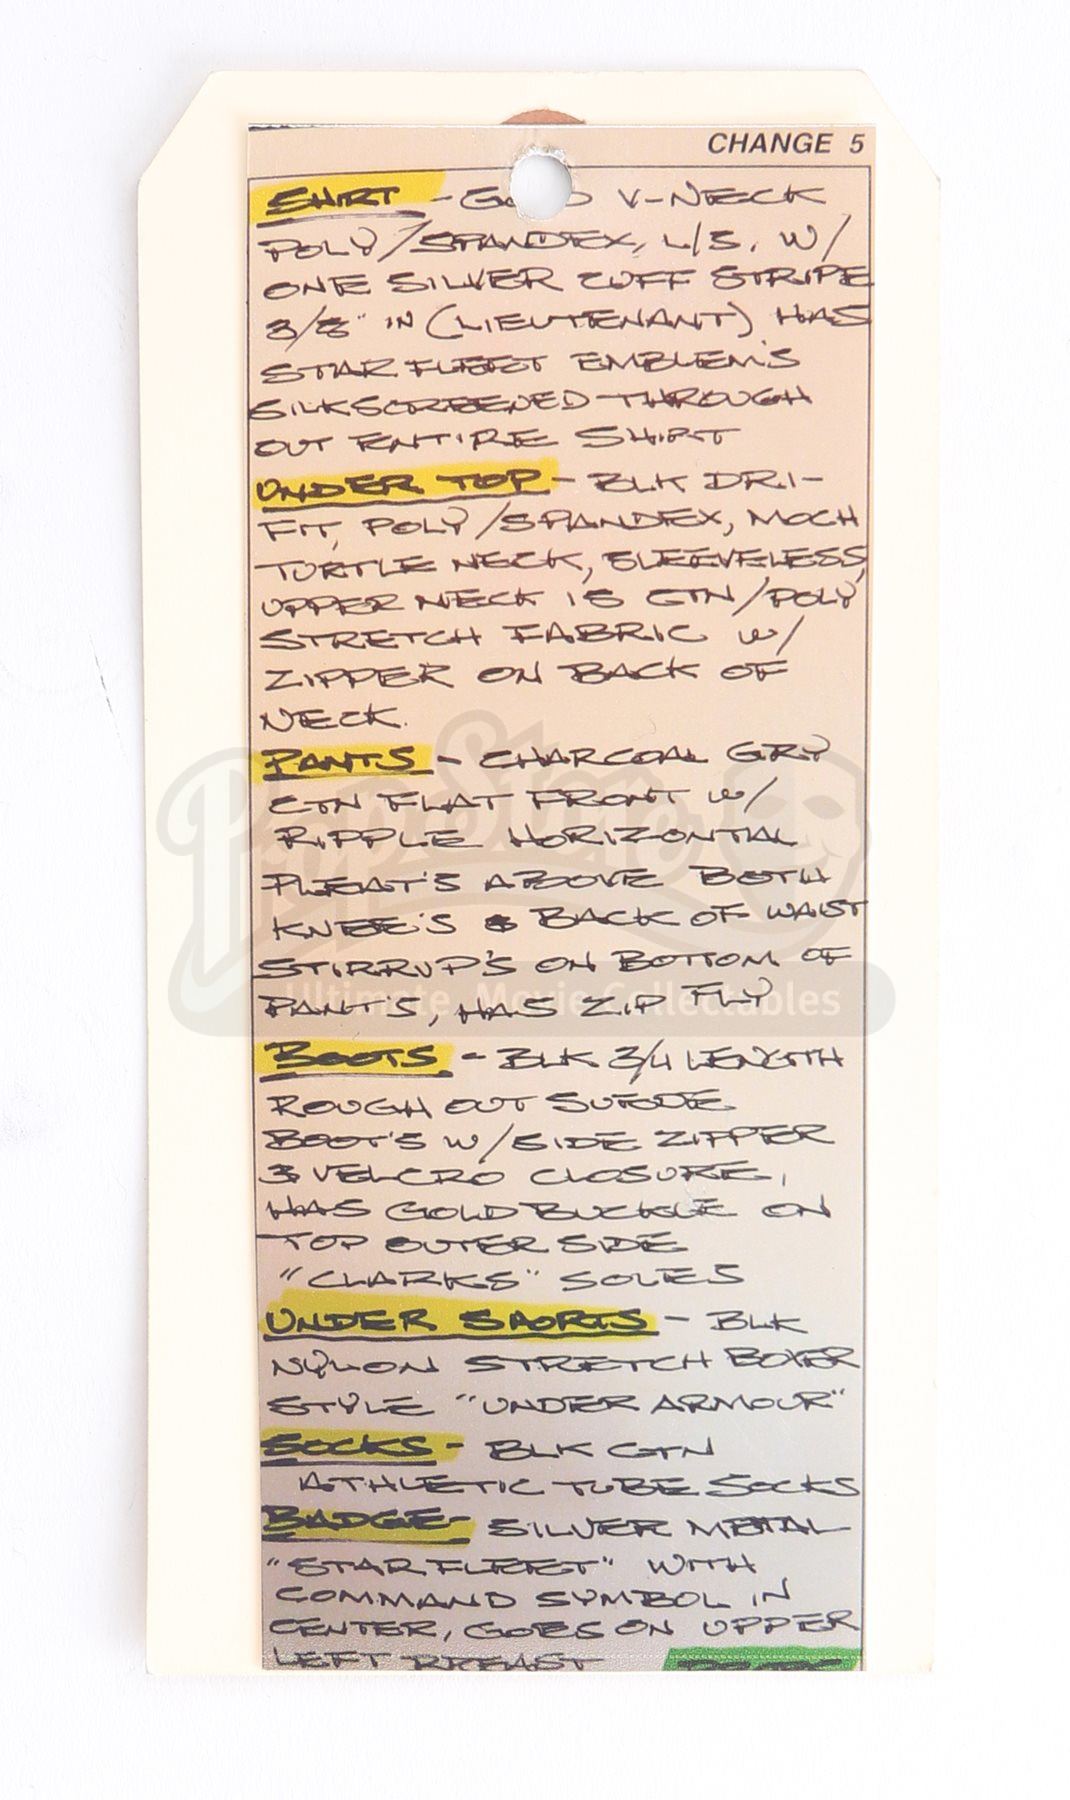 CHANGE 5
SHIRT - GOLD V-NECK
POLY/SPANDEX, L/S, W/
ONE SILVER CUFF STRIPE
3/8" IN (LIEUTENANT) HAS
STAR FLEET EMBLEM'S
SILKSCREENED THROUGH
OUT ENTIRE SHIRT
UNDER TOP - BLK DRI-
FIT, POLY/SPANDEX, MOCH
TURTLE NECK, SLEEVELESS,
UPPER NECK IS CTN/POLY
STRETCH FABRIC W/
ZIPPER ON BACK OF
NECK.
PANTS - CHARCOAL GRY
CTN FLAT FRONT W/
RIPPLE HORIZONTAL
PLEAT'S ABOVE BOTH
KNEE'S & BACK OF WAIST
STIRRUP'S ON BOTTOM OF
PANT'S, HAS ZIP FLY
PropStore
Ultimate Movie Collectables
BOOTS - BLK 3/4 LENGTH
ROUGH OUT SUEDE
BOOT'S W/SIDE ZIPPER
& VELCRO CLOSURE,
HAS GOLD BUCKLE ON
TOP OUTER SIDE
"CLARKS" SOLES
UNDER SHORTS - BLK
NYLON STRETCH BOXER
STYLE "UNDER ARMOUR"
SOCKS - BLK CTN
ATHLETIC TUBE SOCKS
BADGE - SILVER METAL
"STAR FLEET" WITH
COMMAND SYMBOL IN
CENTER, GOES ON UPPER
LEFT BREAST